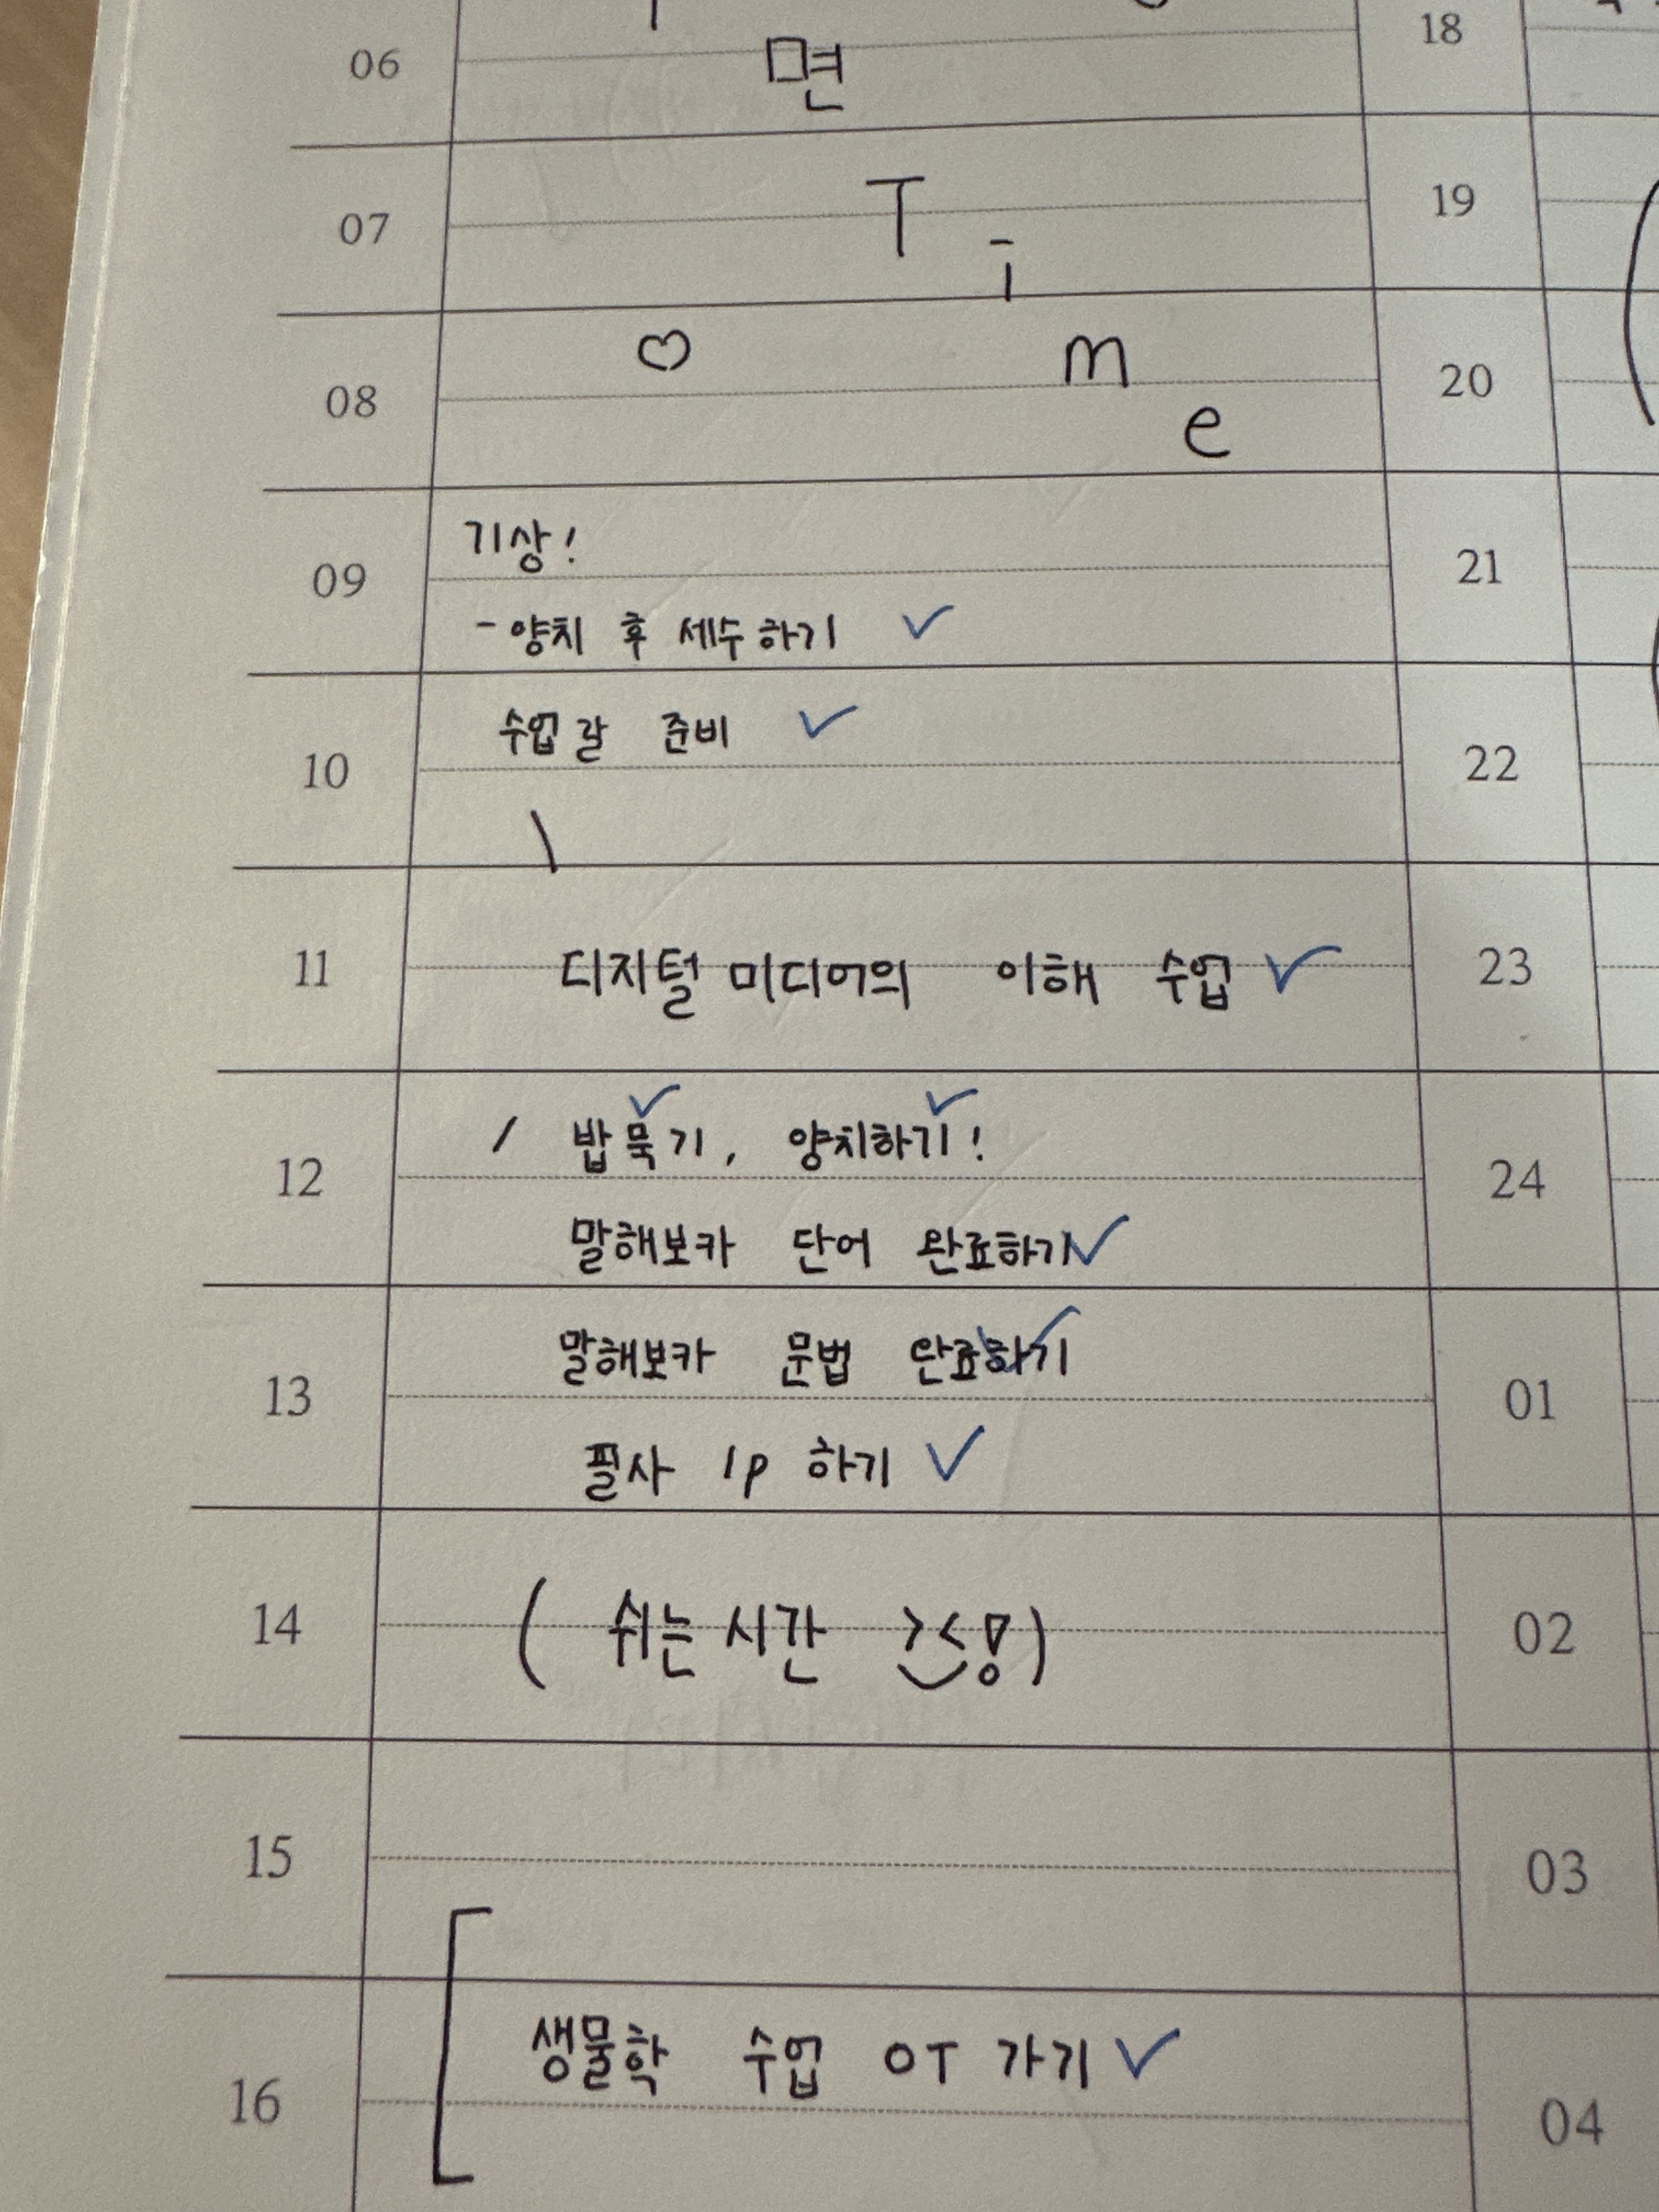 06
면
18
07
T i
19
08
♡ m e
20
09
기상!
- 양치 후 세수하기 ✓
21
10
수업 갈 준비 ✓
22
11
디지털 미디어의 이해 수업 ✓
23
12
밥묵기, 양치하기!
말해보카 단어 완료하기 ✓
24
13
말해보카 문법 완료하기 ✓
필사 1p 하기 ✓
01
14
( 쉬는 시간 >< ! )
02
15
03
16
생물학 수업 OT 가기 ✓
04